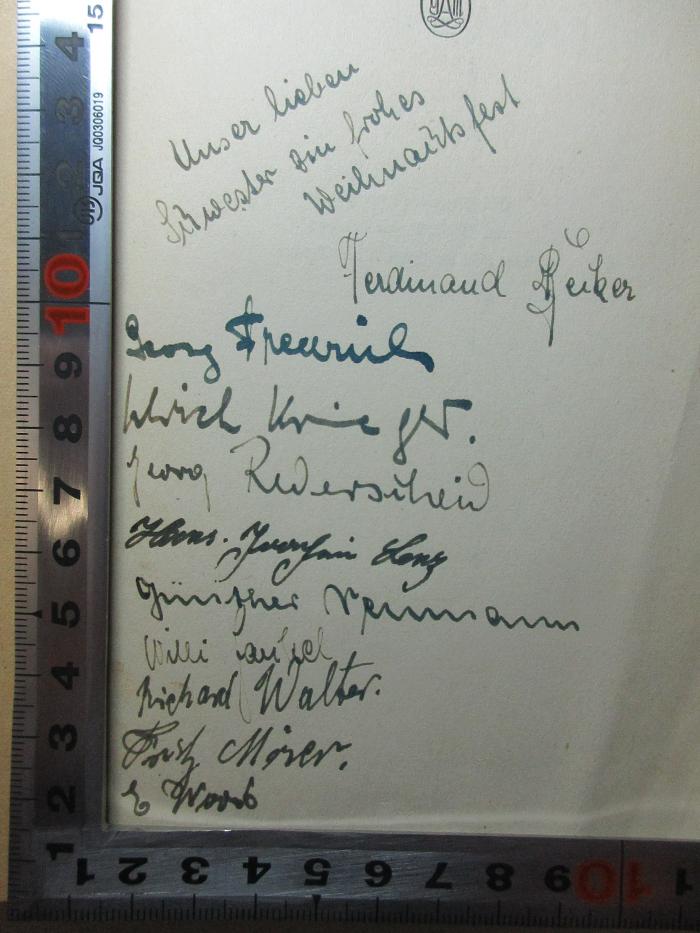 Unser lieben
Schwester ein frohes
Weihnachtsfest
Ferdinand
Georg Friedrich
Ulrich Krieger.
Georg Rederscheid
Hans-Joachim Lenz
Günther Neumann
Willi
Richard Walter.
Fritz
E
15
JQA JQ0306019
4
3
2
1
10
9
8
7
6
5
4
3
2
1
1 2 3 4 5 6 7 8 9 10 1